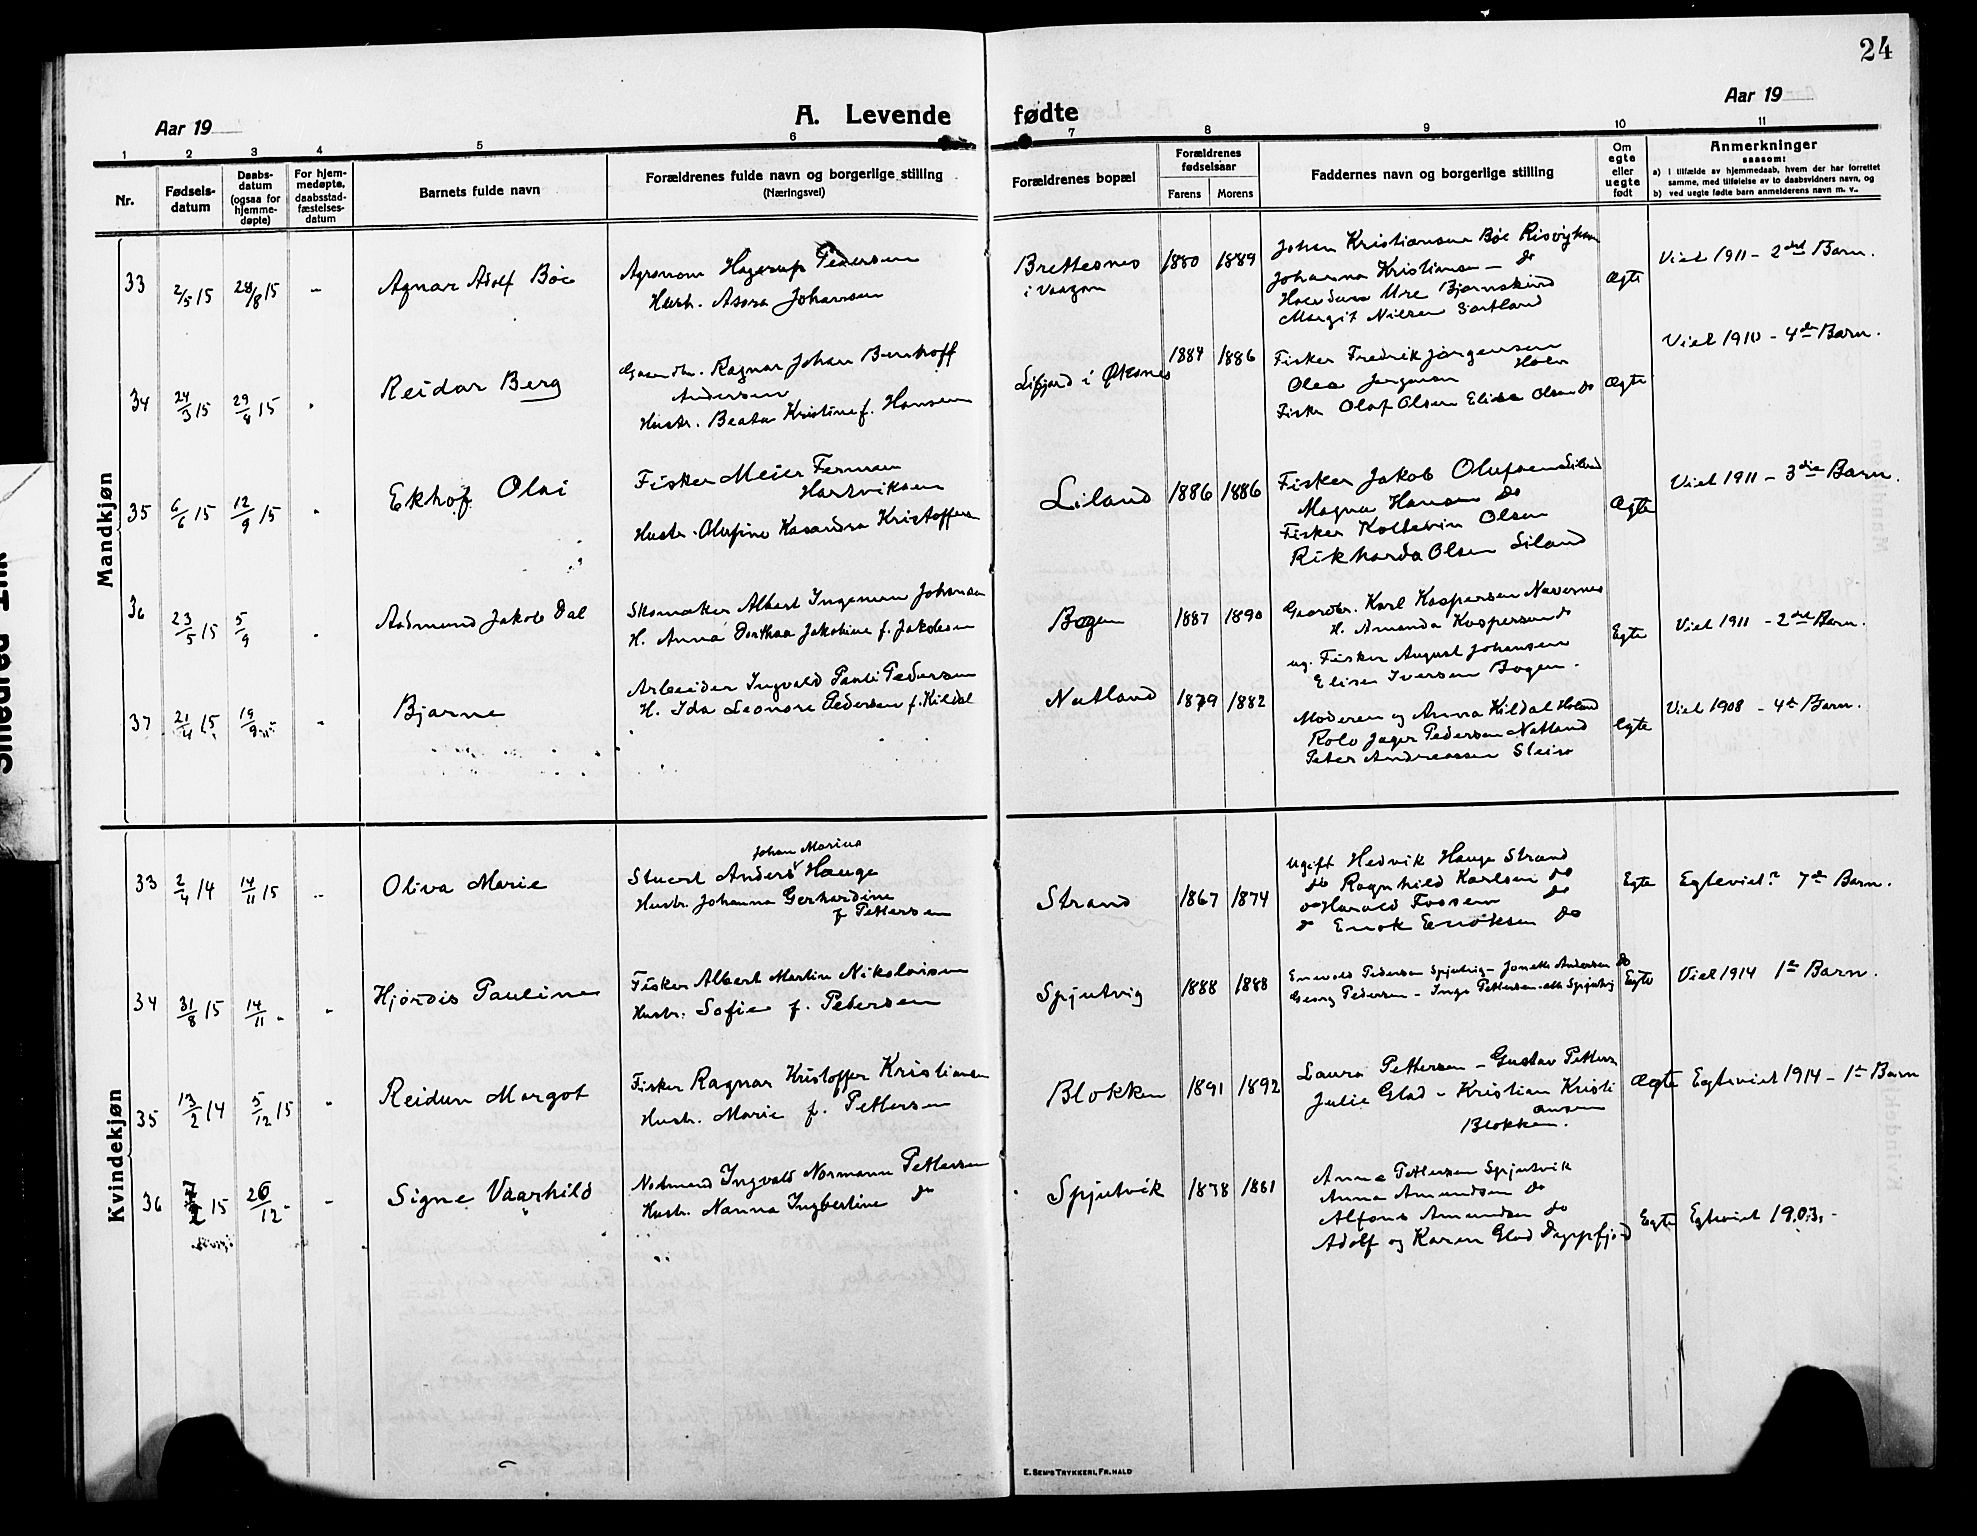 24
Aar 19
A. Levende fødte
Aar 19
1 2 3 4 5 6 7 8 9 10 11
Nr.
Fødsels-
datum
Daabs-
datum
(ogsaa for
hjemme-
døpte)
For hjem-
medøpte,
daabsstad-
fæstelses-
datum
Barnets fulde navn
Forældrenes fulde navn og borgerlige stilling
(Næringsvei)
Forældrenes bopæl
Forældrenes
fødselsaar
Farens Morens
Faddernes navn og borgerlige stilling
Om
egte
eller
uegte
født
Anmerkninger
saasom:
a) i tilfælde av hjemmedaab, hvem der har forrettet
samme, med tilføielse av to daabsvidners navn, og
b) ved uegte fødte barn anmelderens navn m. v..
Mandkjøn
33 2/5 15 28/8 15 - Agnar Adolf Bøe
Agronom Hagerup Pedersen
Hustr. Asora Johansen
Brettesnes
i Vaagan
1880 1889
Johan Kristiansen Bøe
Johanna Kristiansen - do
Margit Nilsen Sortland
Ægte
Viet 1911 - 2det Barn.
34 24/3 15 29/8 15
Reidar Berg
Ragnar Johan Bernhoff
Andersen
Hustr. Beata Kristine f. Hansen
Lifjord i Øksnes
1884 1886
Fisker Fredrik Jørgensen
Holm
Olea Jørgensen
Fisker Olaf Olsen Elise Olsen do
Ægte
Viet 1910 - 4de Barn.
35 6/6 15 12/9 15
Ekhof Olai
Fisker Meier Ferman
Hartviksen
Hustr. Olufine Kasandra Kristoffersen
Liland
1886 1886
Fisker Jakob Olufsen Liland
Magna Hansen do
Fisker Kolbein Olsen
Rikharda Olsen Liland
Ægte
Viet 1911 - 3die Barn.
36 23/5 15 5/9
Aasmund Jakob Dal
Skomaker Albert Ingeman Johansen
H. Anna Dorthea Jakobine f. Jakobsen
Bogen
1887 1890
Gaardbr. Karl Kaspersen Navernes
H. Amanda Kaspersen do
ug. Fisker August Johansen
Elise Iversen Bogen.
Egte
Viet 1911 - 2det Barn.
37 21/4 15 19/9 15
Bjarne
Arbeider Ingvald Pauli Pedersen
H. Ida Leonore Pedersen f. Kildal
Natland
1879 1882
Moderen og Anna Kildal Holand
Rolv Jager Pedersen Natland
Peter Andreassen Sleire
Egte
Viet 1908 - 4de Barn.
Kvindekjøn
33 2/4 14 14/11 15
Oliva Marie
Johan Marius
Stuert Anders Hauge
Hustr. Johanna Gerhardine
f. Pettersen
Strand
1867 1874
Ugift Hedvik Hauge Strand
do Ragnhild Karlsen do
do Harald Fossem do
do Enok Enoksen do
Egte
Egteviet? 7de Barn.
34 31/8 15 14/11 - -
Hjørdis Pauline
Fisker Albert Martin Nikolaisen
Hustr. Sofie f. Petersen
Spjutvig
1888 1888
Enevold Pedersen Spjutvig - Jonette Andersen do
Georg Pedersen - Inga Pettersen alle Spjutvig
Egte
Viet 1914 1ste Barn.
35 13/2 14 5/12 15 -
Reidun Margot
Fisker Ragnar Kristoffer Kristiansen
Hustr. Marie f. Pettersen
Blokken
1891 1892
Laura Pettersen - Gustav Petters
Julie Glad - Kristian Kristi
ansen
Blokken.
Ægte
Egteviet 1914 - 1ste Barn
36 15 26/12 -
Signe Vaarhild
Notmand Ingvald Normann Pettersen
Hustr. Nanna Ingbertine do
Spjutvik
1878 1881
Anna Pettersen Spjutvik
Anna Amundsen do
Alfons Amundsen do
Adolf og Karen Glad Dypfjord
Egte
Egteviet 1903. -
E. SEM'S TRYKKERI, FR.HALD